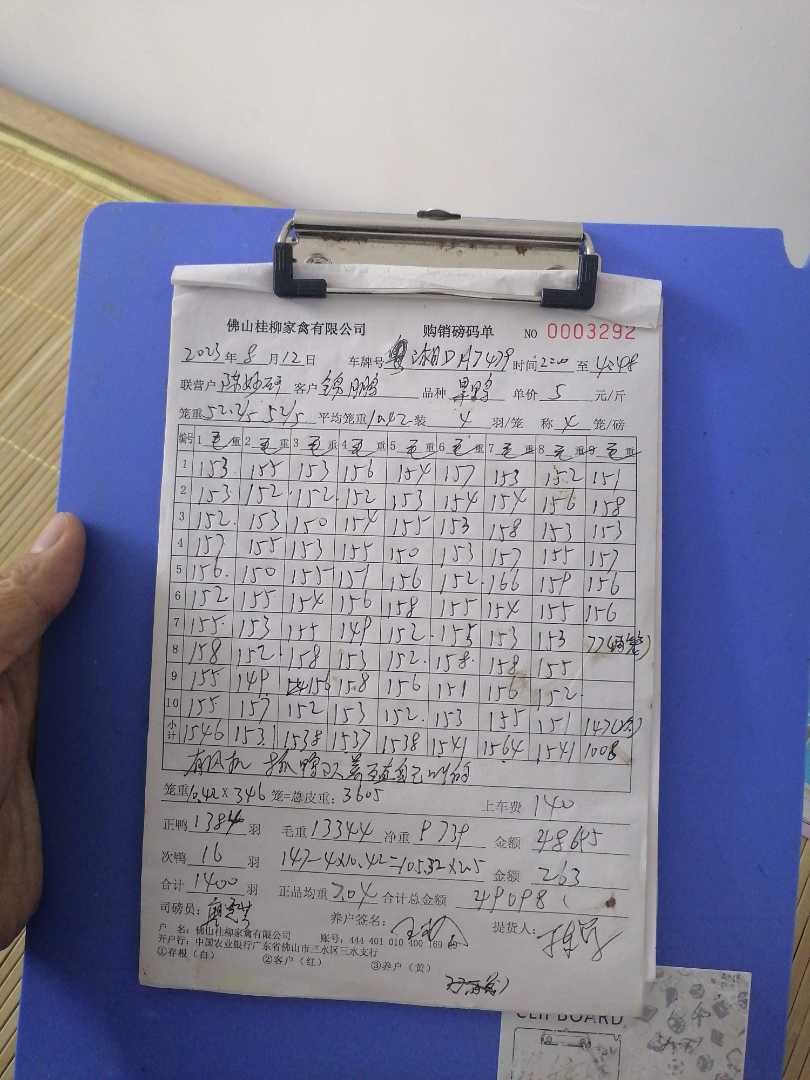 佛山桂柳家禽有限公司 购销磅码单 NO 0003292
2023年8月12日 车牌号 湘DA7479 时间2:00至4:48
联营户 客户 锦鹏 品种 单价 5 元/斤
笼重 52.25 52.5 平均笼重10.42 装 4 羽/笼 称 4 笼/磅
编号 1毛重 2毛重 3毛重 4毛重 5毛重 6毛重 7毛重 8毛重 9毛重
1 153 155 153 156 154 157 153 152 151
2 153 152 152 152 153 154 154 156 158
3 152 153 150 154 155 153 158 153 153
4 157 155 153 155 150 153 157 155 157
5 156 150 155 151 156 152 166 159 156
6 152 155 154 156 158 155 154 155 156
7 155 153 155 149 152 155 153 153 77(两笼)
8 158 152 158 153 152 158 158 155
9 155 149 156 158 156 151 156 152
10 155 157 152 153 152 153 155 151 147
小计 1546 1531 1538 1537 1538 1541 1564 1541 1008
笼重10.42×346笼=总皮重：3605 上车费 140
正鸭 1384 羽 毛重 13344 净重 9739 金额 48695
次鸭 16 羽 147-4×10.42=105.32×2.5 金额 263
合计 1400 羽 正品均重 7.04 合计总金额 49098
司磅员： 养户签名： 提货人：
户 名：佛山桂柳家禽有限公司 账号：444 401 010 400 169
开户行：中国农业银行广东省佛山市三水区三水支行
①存根（白） ②客户（红） ③养户（黄）
CLIPBOARD